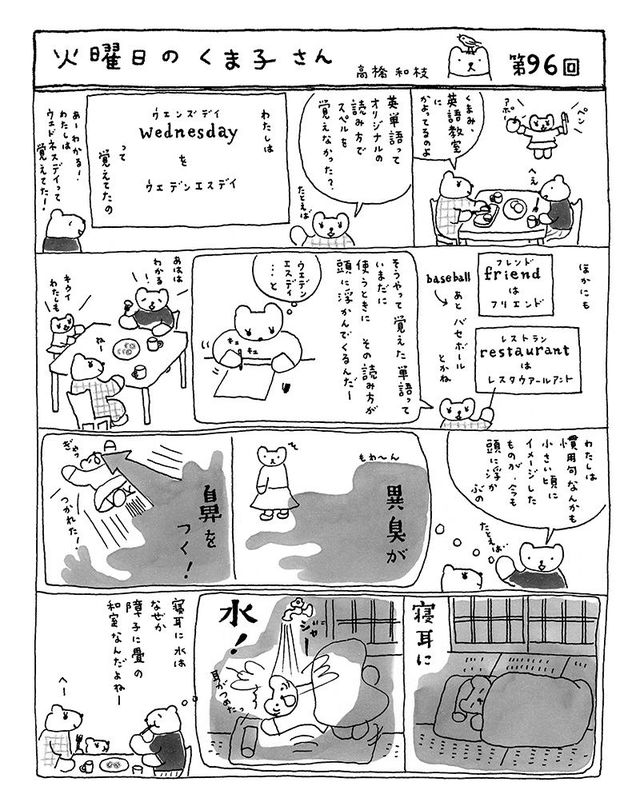 火曜日のくま子さん
高橋和枝
第96回
ペン
アポー
くまみ、
英語教室
に
かよってるのよ
へえ
英単語って
オリジナルの
読み方で
スペルを
覚えなかった？
たとえば
わたしは
ウェンズデイ
wednesday
を
ウェデンエスデイ
って
覚えてたの
あーわかる！
わたしは
ウェドネスデイって
覚えてた！
ほかにも
フレンド
friend
は
フリエンド
レストラン
restaurant
は
レスタウアールアント
baseball
あと
バセボール
とかね
そうやって覚えた単語って
いまだに
使うときに その読み方が
頭に浮かんでくるんだー
ウェデン
エスデイ
…と
キュ
キュ
あはは
わかる！
キウイ
わたしも
ねー
わたしは
慣用句なんかも
小さい頃に
イメージした
ものが、今も
頭に浮か
ぶの
たとえば
もわ〜ん
異臭が
そ
鼻を
つく！
ぎゃっ
つかれた！
寝耳に
水！
ジャー
耳がつめたっ
寝耳に水は
なぜか
障子に畳の
和室なんだよねー
へー